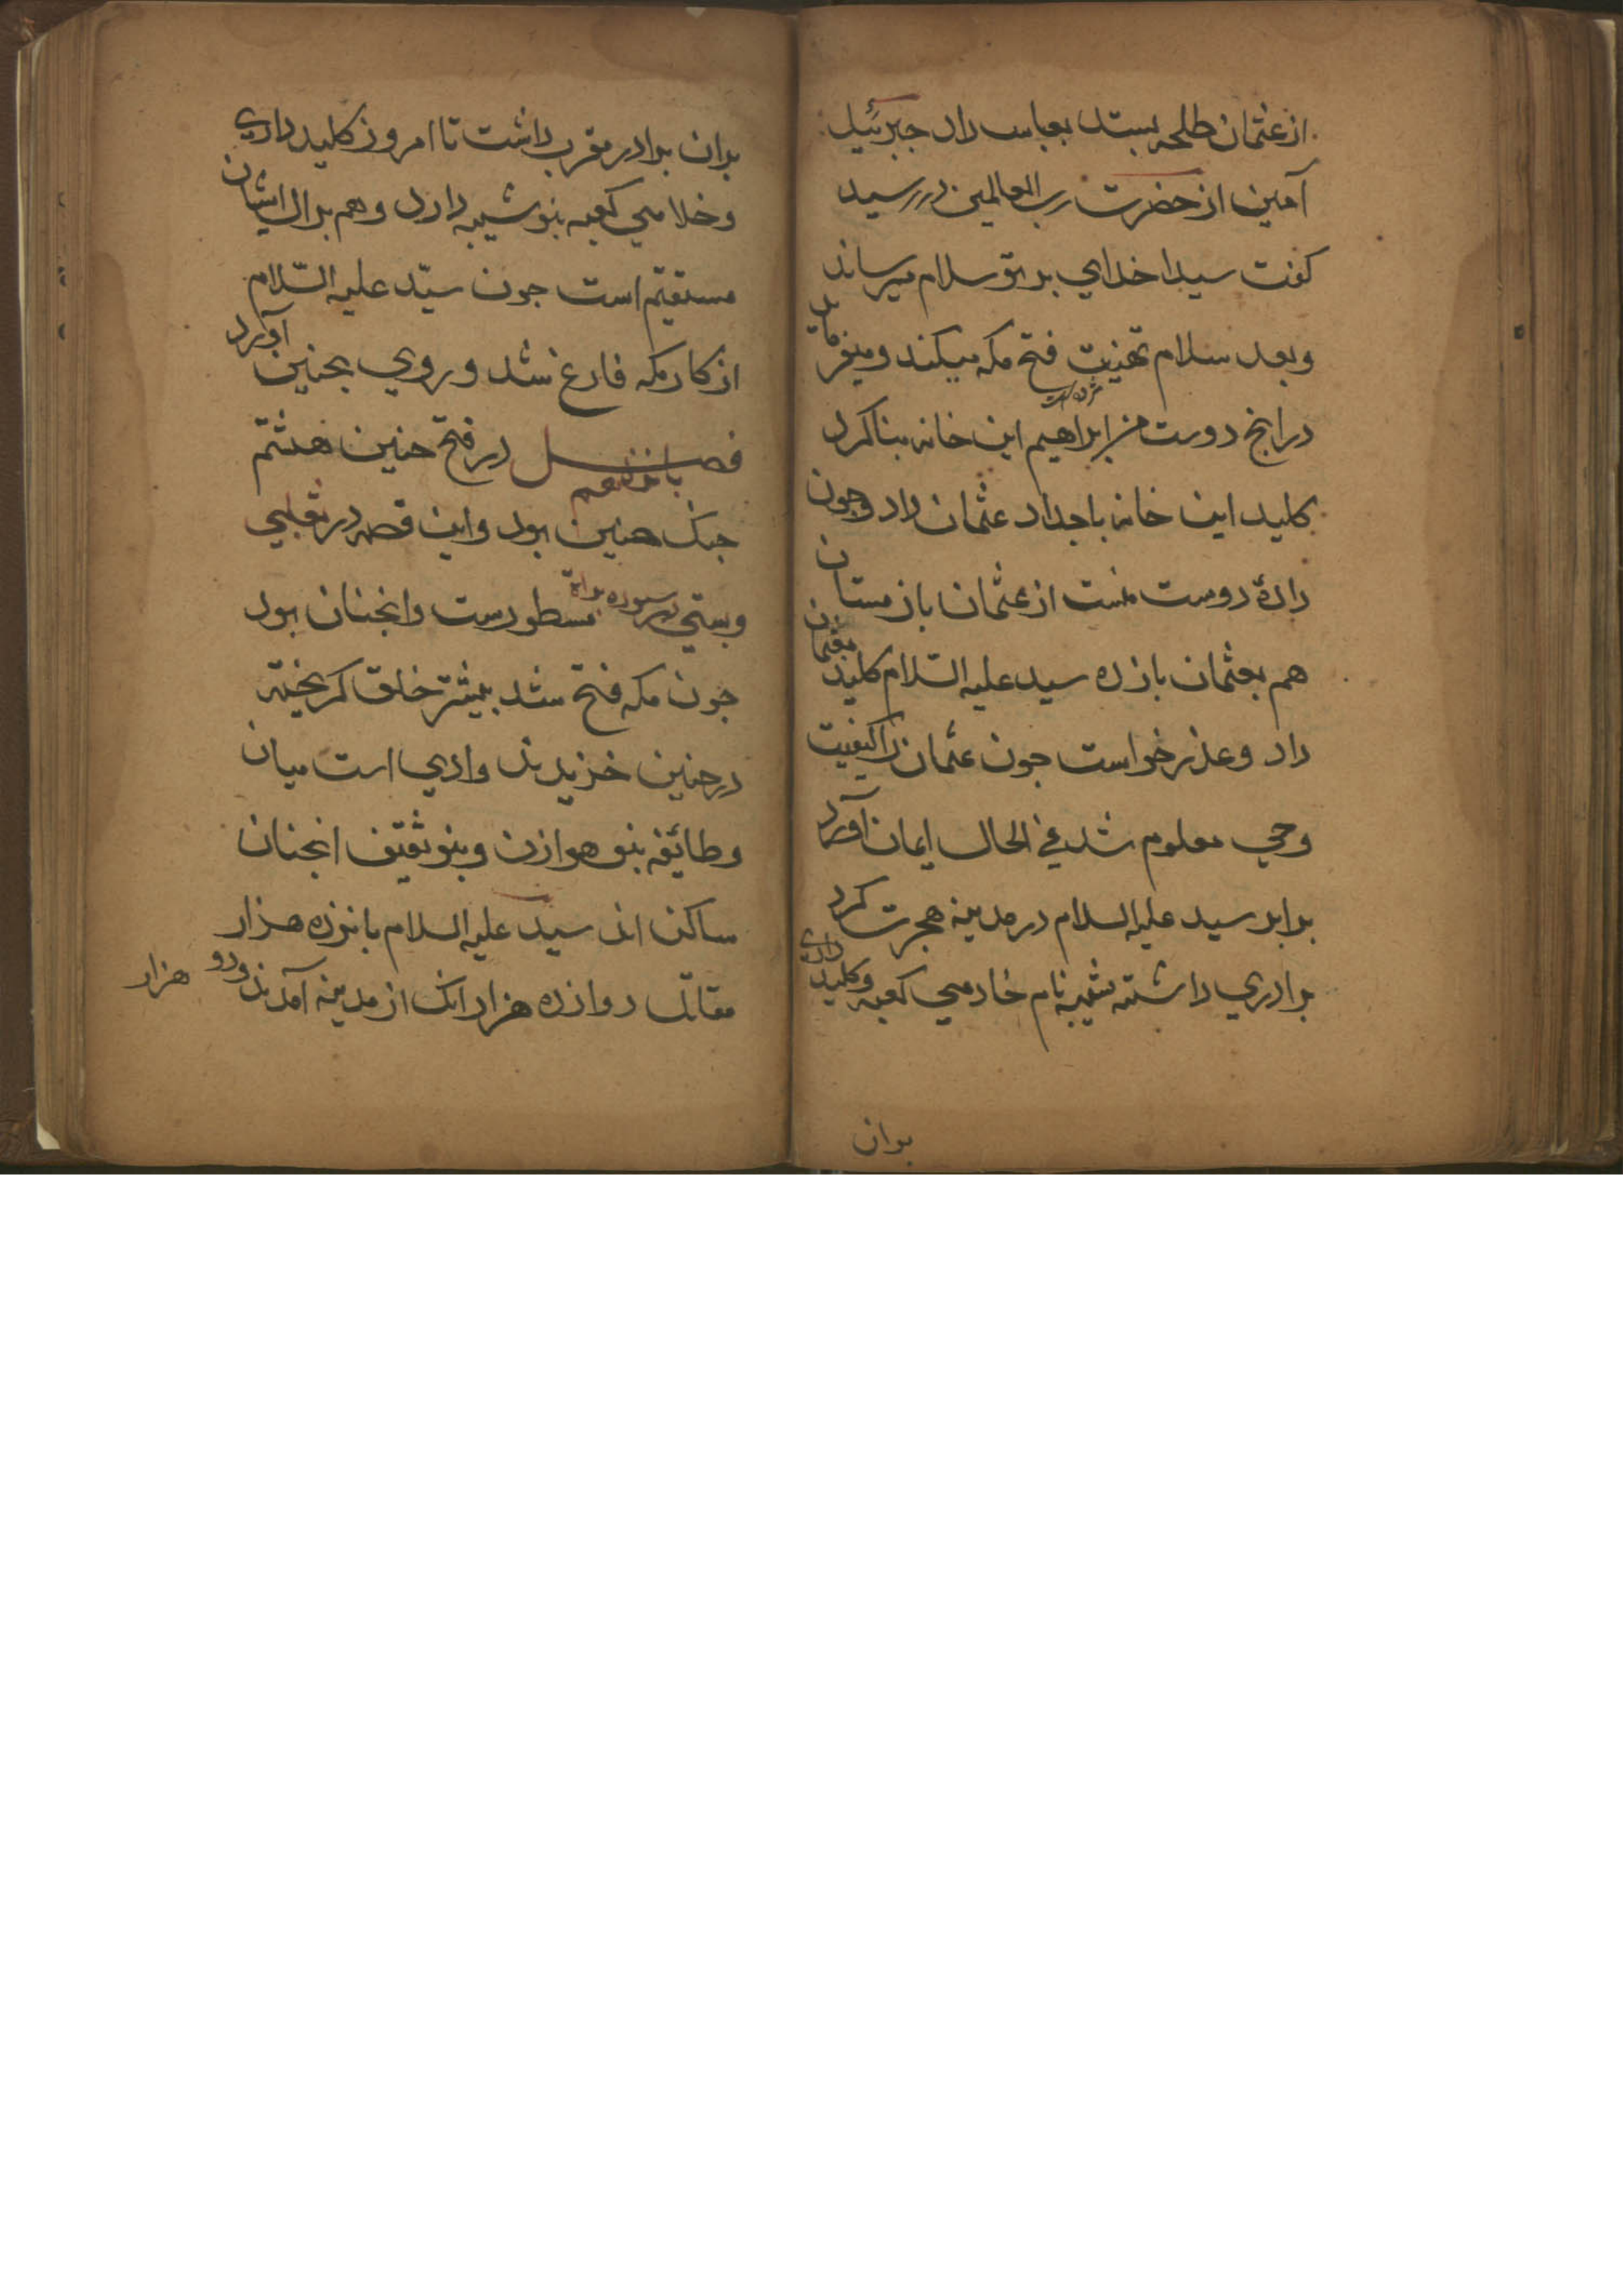 از عثمان طلحه بستد بعباس داد جبرئیل
آمین از حضرت رب العالمین در رسید
کفت سیدا خدای بر تو سلام میرساند
و بعد سلام تهنیت فتح مکه میکند و میفرماید
در انج دوست من ابراهیم این خانه بنا کرد
کلید این خانه باجداد عثمان داد و جون
دادۀ دوست منست از عثمان باز مستان
هم بعثمان باز ده سید علیه السّلام کلید بعثمان
داد و عذر خواست جون عثمان را کیفیت
وحی معلوم شد فی الحال ایمان آورد
برابر سید علیه السلام در مدینه هجرت کرد
برادری داشته شیبه نام خادمی کعبه و کلید داری
بدان
بدان برادر مقرب داشت تا امروز کلید داری
و خادمی کعبه بنو شیبه دارد و هم بدال ایشان
مستقیم است جون سیّد علیه السّلام
از کار مکه فارغ شد و روی بحنین آورد
فصل در فتح حنین هشتم
جنک حنین بود و این قصه در ثعلبی
و بستی در سوره براة مسطورست و انجنان بود
جون مکه فتح شد بیشتر خلق کریخته
در حنین خزیدند وادی است میان
و طائیفه بنو هوازن و بنو ثقیف انجنان
ساکن اند سید علیه السلام بانزده هزار
مقاتل دوازده هزار انک از مدینه آمدند و دو هزار